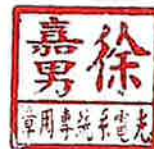 徐
嘉男
光電系統專用章